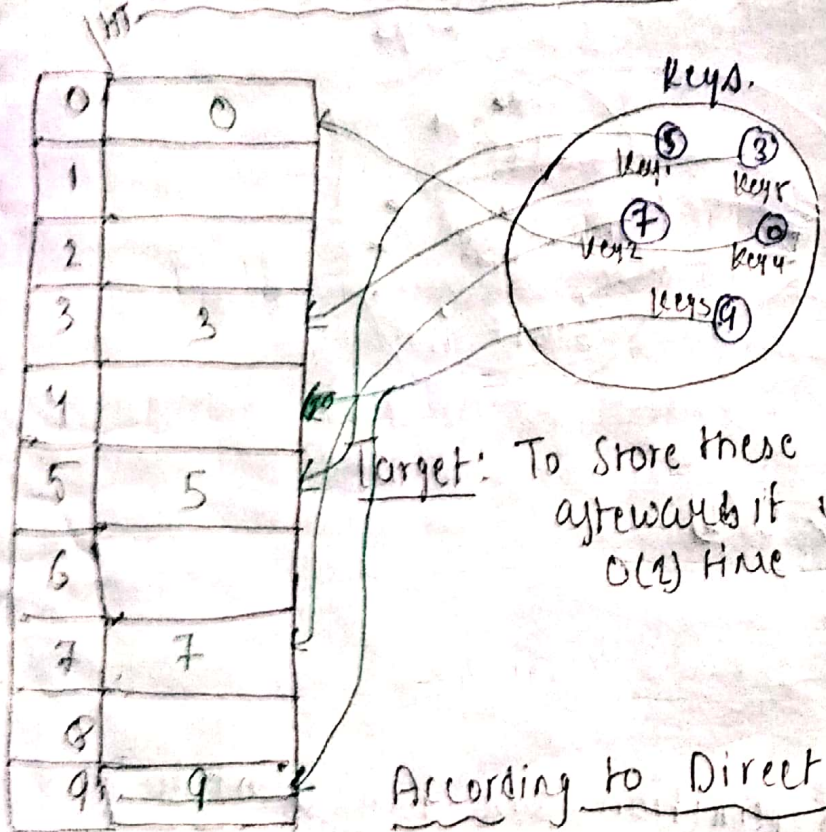 HT
0 0
1
2
3 3
4
5 5
6
7 7
8
9 9
Keys.
5 3
Key1 Key5
7 0
Key2 Key4
Key3 9
Target: To Store these
aftewards it
O(1) time
According to Direct